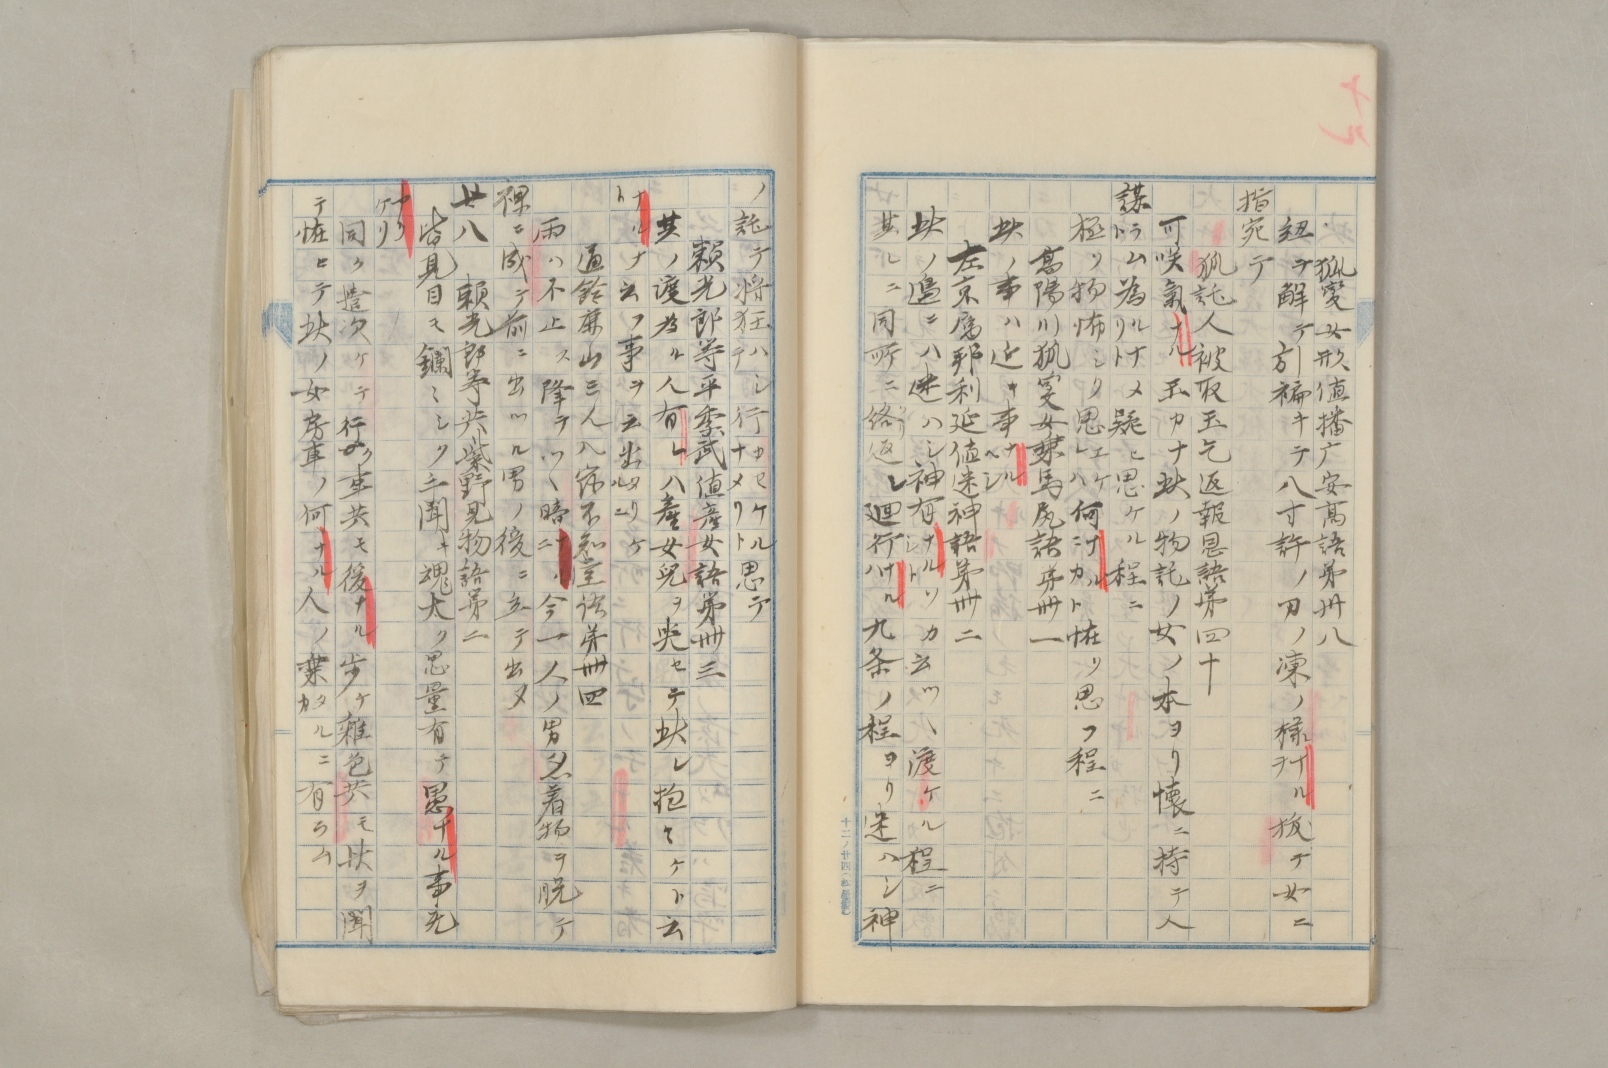 狐變女形値播广安高語第卅八
紐ヲ解テ引褊キテ八寸許ノ刀ノ凍ノ様ナルヲ抜テ女ニ
指宛テ
狐託人被取玉乞返報恩語第四十
可咲氣ナル玉カナ此ノ物託ノ女ノ本ヨリ懐ニ持テ人
謀ラム為ルナメリト疑ヒ思ケル程ニ
極ク物怖シク思エケレハ何ニナルカト怪ク思フ程ニ
高陽川狐変女乗馬尻語第卅一
此ノ事ハ近キ事ナルベシ
左京属邦利延値迷神語第卅二
此ノ邉ニハ迷ハシ神有ナルソカシト云ツヽ渡ケル程ニ
其レニ同所ニ絡返シ廻行ハナル九条ノ程ヨリ迷ハシ神
ノ託テ将狂ハシテ行カセケルナメリト思テ
頼光郎等平季武値産女語第卅三
其ノ渡為ル人有レハ産女兒ヲ哭セテ此レ抱ケヽト云
ナルナト云フ事ヲ云出タリケルニ
通鈴鹿山三人入宿不知堂語第卅四
雨ハ不止ス降テツヽ暗ナルニ今一人ノ男忽着物ヲ脱テ
裸ニ成テ前ニ出ツル男ノ後ニ立テ出ヌ
廿八 頼光郎等共紫野見物語第二
皆見目モ鑭ミシク手聞キ魂太ク思量有テ愚ナル事无
カリケリ
同ク遣次ケテ行ク車共モ後ナル歩ケ雑色共モ此ヲ聞
テ怪ヒテ此ノ女房車ノ何ナル人ノ乗タルニカ有ラム